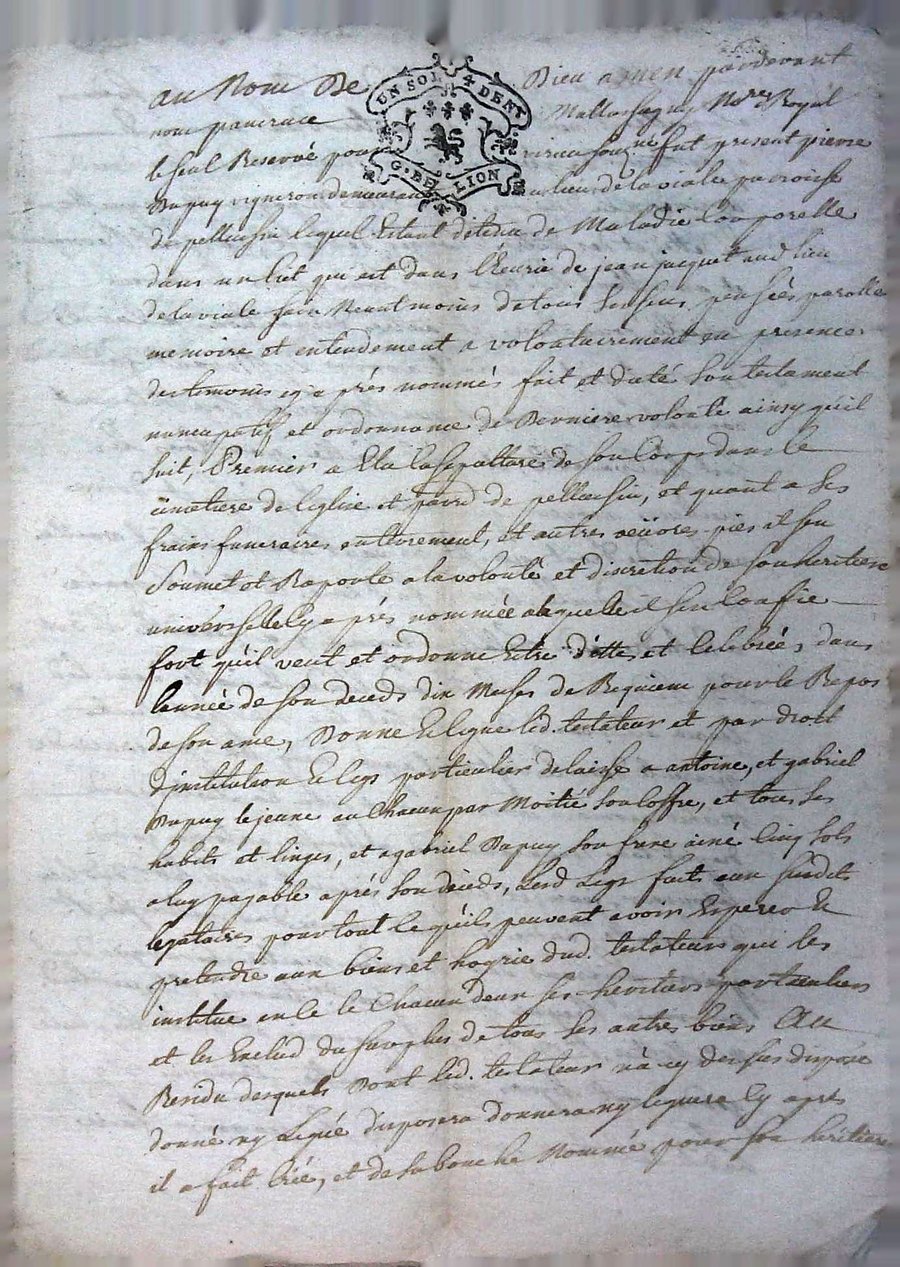 au Nom De Dieu amen pardevant
UN SOL 4 DEN.
nous pancrace Mallassagny No.re Royal
le seul Reservé pour soussigné fut present pierre
G. DE LION
Dupuy vigneron demeurant au lieu de la viale paroisse
du pellussin lequel Estant détenu de Maladie Corporelle
dans un lict qui est dans l'Ecurie de jean jacquet aud lieu
de la viale sain Neantmoins de tous ses sens pensées parolle
memoire et entendement a volontairement en presence
des temoins cy a prés nommés fait et dicté son testament
nuncupatif et ordonnance de Derniere volonté ainsy qu'il
suit, Premier a Elu la sepulture de son Corps dans le
cimetiere de l'église et parro de pellussin, et quant a ses
frais funeraires enterrement, et autres oeuvres pies il s'en
Soumet et Raporte a la volonté et discretion de son heritiere
universelle cy a prés nommée a laquelle il s'en confie
fort qu'il veut et ordonne Estre dittes et Celebrées dans
l'année de son deceds dix Messes de Requiem pour le Repos
de son ame, Donne et legue led. testateur et par droit
d'institution et legs particulier delaisse a antoine, et gabriel
Dupuy le jeune au Chacun par Moitié son coffre, et tous ses
habits et linges, et a gabriel Dupuy son frere ainé Cinq sols
a luy payable aprés son deceds, Lesd Legs faits aux susdits
legataires pour tout ce qu'ils peuvent avoir Esperer et
pretendre aux biens et hoyrie dud. testateur qui les
institue en ce le Chacun deux ses heritiers particuliers
et les Exclud du surplus de tous ses autres biens Au
Residu desquels Dont led. testateur n'a cy dessus disposé
donné ny Legué disposera donnera ny leguera Cy aprés
il a fait Créé, et de sa bouche Nommé pour son heritiere